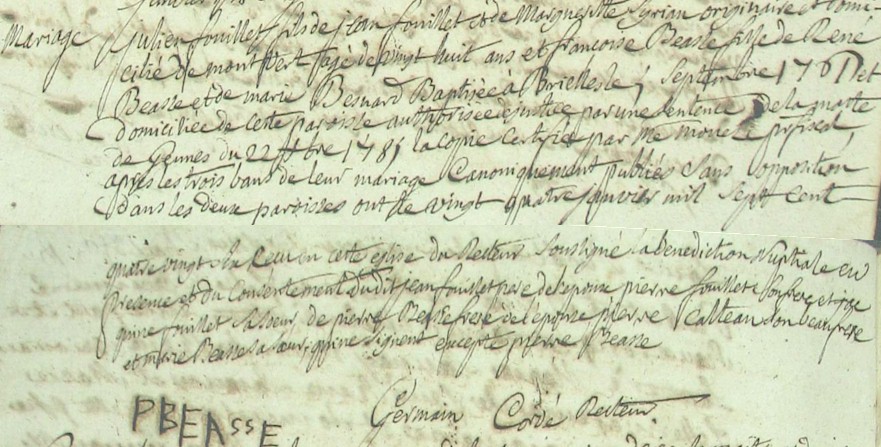 Mariage
julien fouillet fils de jean fouillet et de Marguerite Syrian originaire et domi-
cilié de montvert agé de vingt huit ans et francoise Beasse fille de René
Beasse et de marie Besnard Baptisée à Brielles le 1 Septembre 1761 et
domiciliée de cette paroisse authorisée de justice par une sentence de la
de Gennes du 22 1785 la copie Certifiée par Me
apres les trois bans de leur mariage Canoniquement publiés Sans opposition
dans les deux paroisses ont le vingt quatre janvier mil Sept Cent
quatre vingt Six Recu en cette église du Recteur Soussigné la benediction Nuptiale en
Presence et du Consentement dudit jean fouillet pere de l'epoux pierre fouillet Son frere et
fouillet Sa Soeur de pierre Beasse frere de l'epouse pierre Catteau Son beaufrere
et marie Beasse Sa Soeur, qui ne Signent excepté pierre Beasse
PBEASSE
Germain Cordé Recteur